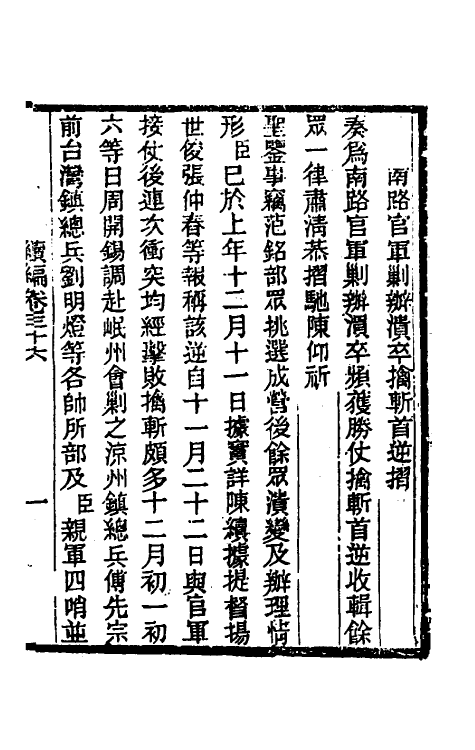 南路官軍剿辦潰卒擒斬首逆摺
奏爲南路官軍剿辦潰卒頻獲勝仗擒斬首逆收輯餘
眾一律肅清恭摺馳陳仰祈
聖鑒事竊范銘部眾挑選成營後餘眾潰變及辦理情
形臣已於上年十二月十一日據實詳陳續據提督揚
世俊張仲春等報稱該逆自十一月二十二日與官軍
接仗後連次衝突均經擊敗擒斬頗多十二月初一初
六等日周開錫調赴岷州會剿之涼州鎮總兵傅先宗
前台灣鎮總兵劉明燈等各帥所部及臣親軍四哨並
續編卷三十六
一